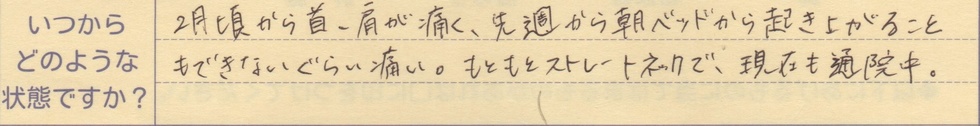 いつから
どのような
状態ですか？
2月頃から首、肩が痛く、先週から朝ベッドから起き上がること
もできないぐらい痛い。もともとストレートネックで、現在も通院中。